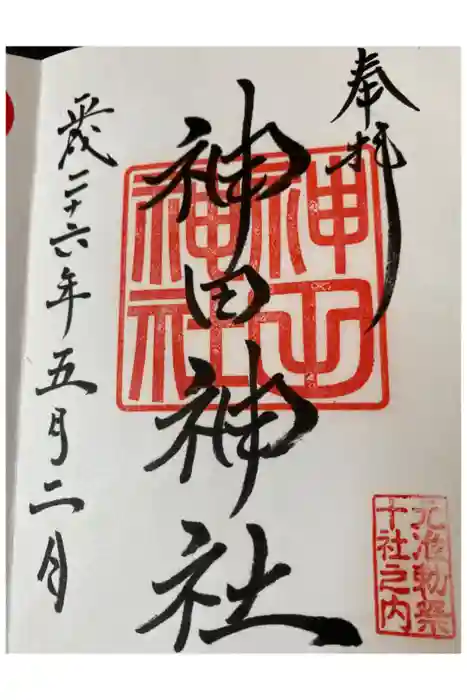 奉拝
神田神社
神田
神社
元准勅祭
十社之内
平成二十六年五月二日